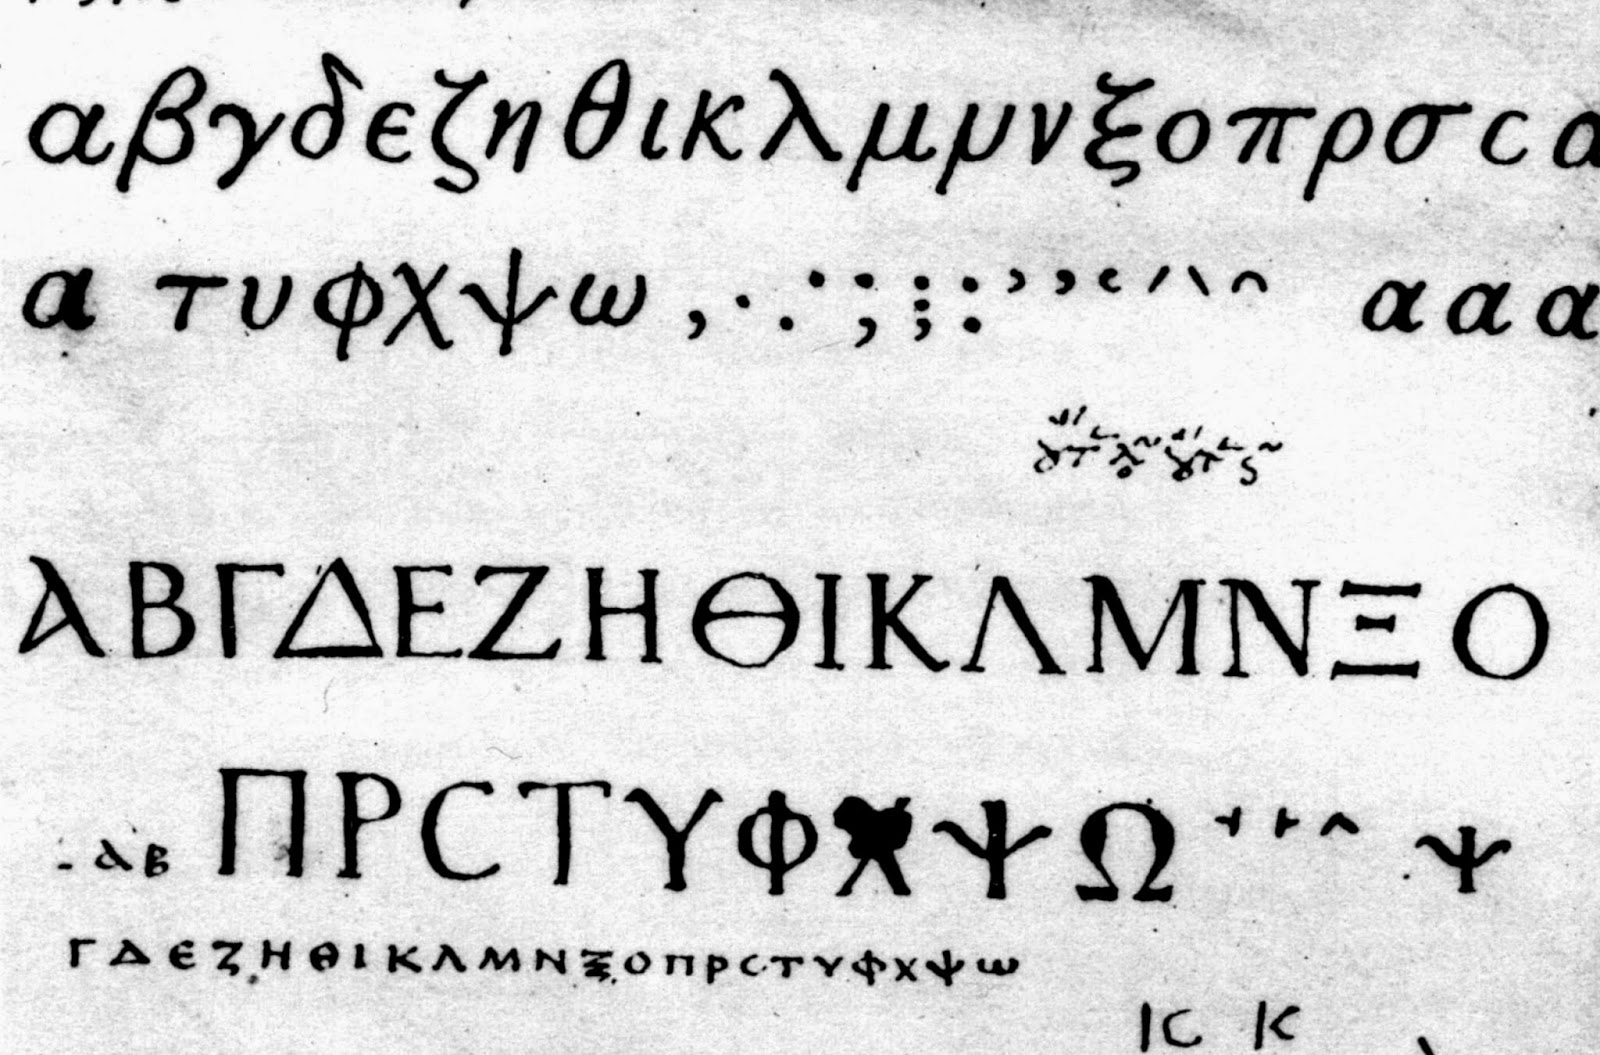 αβγδεζηθικλμμνξοπρσϲα
α τυφχψω , · : ; ⁏ : ʼ ʼ ʽ ´ ` ῀ α α α
ΑΒΓΔΕΖΗΘΙΚΛΜΝΞΟ
- αβ ΠΡϹΤΥΦΧΨΩ Ψ
ΓΔΕΖΗΘΙΚΛΜΝΞΟΠΡϹΤΥΦΧΨω
ΙϹ Κ